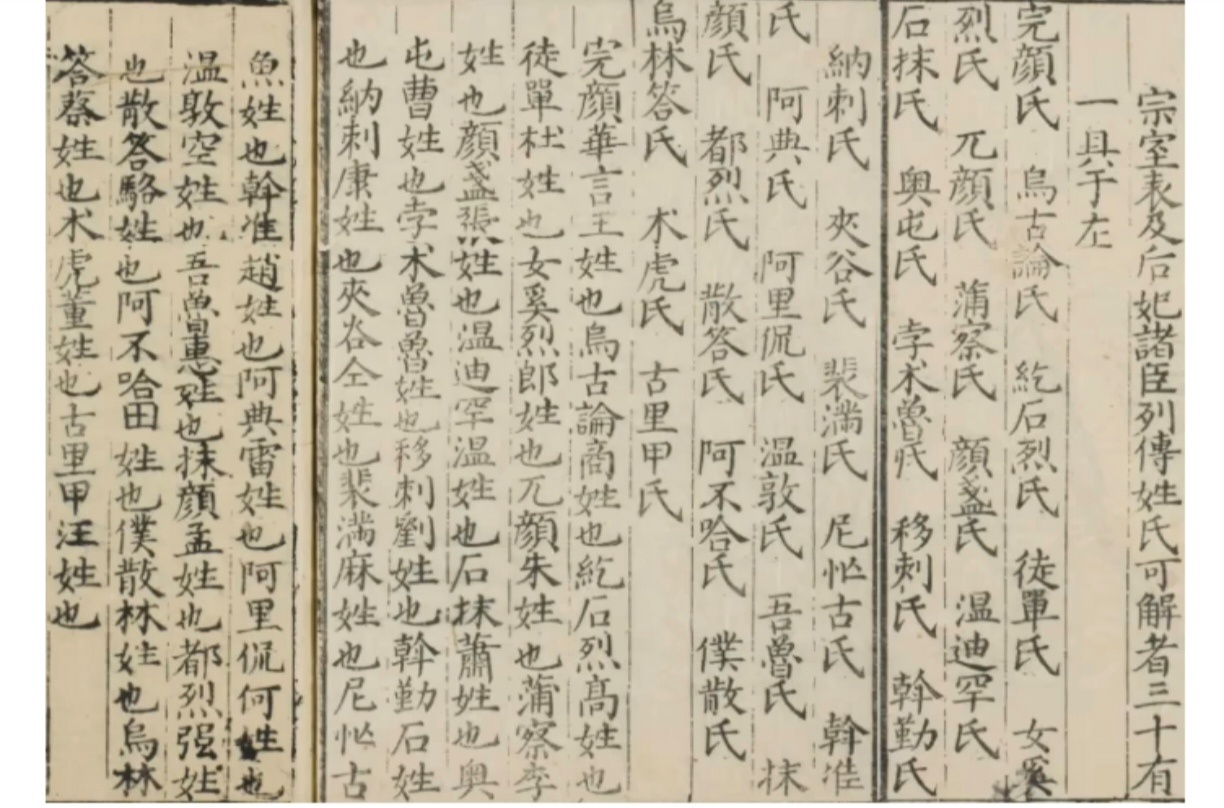 宗室表及后妃諸臣列傳姓氏可解者三十有
一具于左
完顏氏 烏古論氏 紇石烈氏 徒單氏 女奚
烈氏 兀顏氏 蒲察氏 顏盞氏 温迪罕氏
石抹氏 奥屯氏 孛术魯氏 移刺氏 幹勤氏
納刺氏 夾谷氏 裴滿氏 尼忙古氏 幹准
氏 阿典氏 阿里侃氏 温敦氏 吾魯氏 抹
顏氏 都烈氏 散答氏 阿不哈氏 僕散氏
烏林答氏 术虎氏 古里甲氏
完顏華言王姓也烏古論商姓也紇石烈高姓也
徒單杜姓也女奚烈郎姓也兀顏朱姓也蒲察李
姓也顏盞張姓也温迪罕温姓也石抹蕭姓也奥
屯曹姓也孛术魯魯姓也移刺劉姓也幹勤石姓
也納刺康姓也夾谷仝姓也裴滿麻姓也尼忙古
魚姓也幹准趙姓也阿典雷姓也阿里侃何姓也
温敦空姓也吾魯惠姓也抹顏孟姓也都烈强姓
也散答駱姓也阿不哈田姓也僕散林姓也烏林
答蔡姓也术虎董姓也古里甲汪姓也